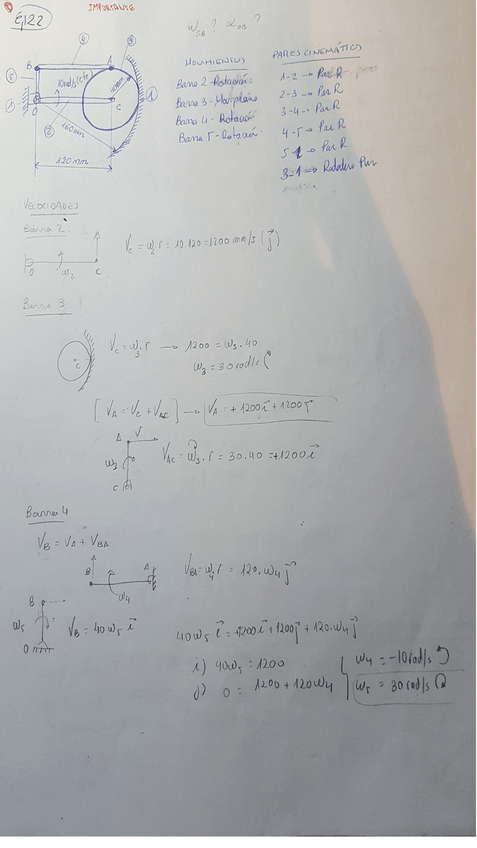 IMPORTANTE
Ej22
ω₀B? α₀B?
MOVIMIENTOS
Barra 2 - Rotación
Barra 3 - Mov. plano
Barra 4 - Rotación
Barra 5 - Rotación
PARES CINEMÁTICOS
1-2 → Par R
2-3 → Par R
3-4 → Par R
4-5 → Par R
5-1 → Par R
3-1 → Rodadero Pur
4
3
B
A
5
10rd/s (cte)
40mm
1
C
1
O
2
160mm
120mm
VELOCIDADES
Barra 2
O ω₂ C
Vc = ω₂ r = 10.120 = 1200 mm/s (j)
Barra 3
C
Vc = ω₃.r → 1200 = ω₃.40
ω₃ = 30 rad/s
[VA = Vc + VAC] → VA = +1200i + 1200j
A V
ω₃
C
VAC = ω₃.r = 30.40 = +1200i
Barra 4
VB = VA + VBA
B A
ω₄
VBA = ω₄ r = 120.ω₄ j
B
ω₅
O
VB = 40ω₅ i
40ω₅ i = +1200i + 1200j + 120.ω₄ j
i) 40ω₅ = 1200
j) 0 = 1200 + 120ω₄
ω₄ = -10 rad/s
ω₅ = 30 rad/s